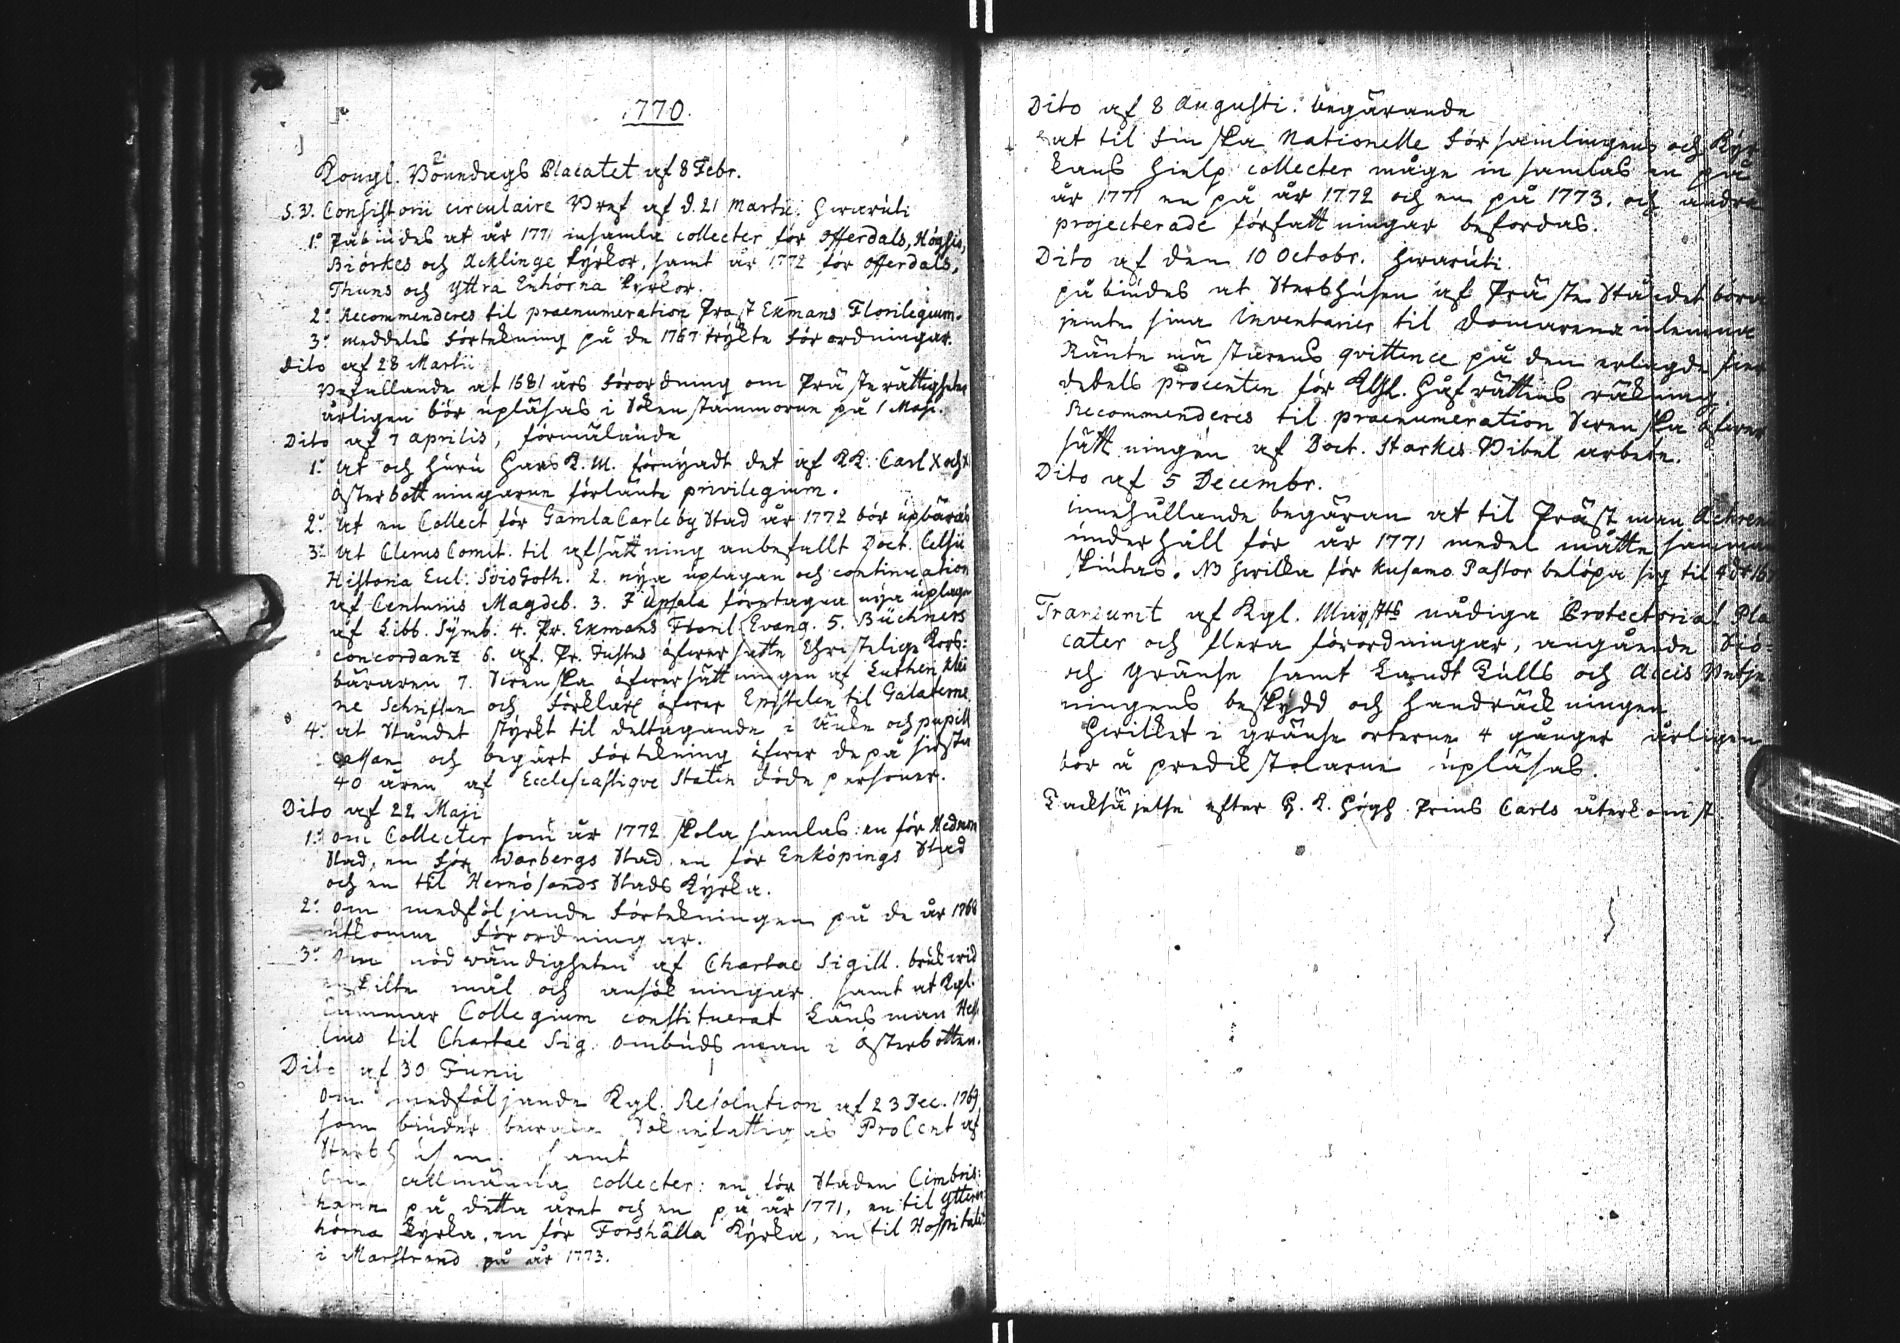 1770.
Kongl. Bönedags Placatet af 8 Febr.
S.V. Consistorii circulaire Bref af d. 21 Martii. Hwaruti
1:o Påbiudes at år 1771 insamla collecter för Offerdals, Högsjö,
Biörkes och Acklinge kyrkor, samt år 1772 för Offerdals,
Thuns och Yttra Enhörna kyrkor.
2:o Recommenderes til praenumeration Prost Ekmans Florilegium.
3:o meddeles förtekning på de 1767 trykte förordningar.
Dito af 28 Martii
Befallande at 1681 års förordning om Prästerättigheter
årligen bör upläsas i Sokenstämmorne på 1 Maji.
Dito af 7 Aprilis, förmälande
1:o at och huru Hans K. M. förnyadt det af KK. Carl X och
Österbottningarne förlänte privilegium.
2:o at en Collect för Gamla Carleby Stad år 1772 bör upbäras
3:o at Clerus Comit. til afsättning anbefallt Doct. Celsii
Historia Eccl. Svio Goth. 2. nya uplagan och continuation
af Centuriis Magdeb. 3. I Upsala företagna nya uplagn
af Libb. Symb. 4. Pr. Ekmans Floril. Evang. 5. Büchners
concordanz 6. af Pr. öfwersatte Christelige Kors:
bäraren 7. Swenska öfwersättningen af Lutheri klei
ne Schriften och förklar. öfwer Epistelen til Galaterne.
4:o at Ståndet styrkt til deltagande i Änke och pupill
cassan och begärt förtekning öfwer de på sidsta
40 åren af Ecclesiastique Staten döde personer.
Dito af 22 Maji
1:o om Collecter som år 1772 skola samlas: en för Hedmora
Stad, en för Warbergs Stad, en för Enköpings Stad
och en til Hernösands Stads Kyrka.
2:o om medföljande förtekningen på de år 1768
utkomna förordningar.
3:o Om nödwändigheten af Chartae Sigill. bruk wid
enskilte mål och ansökningar, samt at Kgl.
Cammar Collegium constituerat Länsman
til Chartae Sig. Ombudsman i Österbotten.
Dito af 30 Junii
om medföljande Kgl. Resolution af 23 Dec. 1769,
som biuder bewara Sokne fattigas ProCent af
Sterbhusen. Samt
Om allmänna collecter: en för Staden Cimbris:
hamn på detta året och en på år 1771, en til Yttern
hörna kyrka, en för Forshälla Kyrka, en til Hospitalet
i Marstrand på år 1773.
Dito af 8 Augusti. begärande
at til Finska Nationelle Församlingens och Kyr
kans hielp collecter måge insamlas en på
år 1771 en på år 1772 och en på 1773. och andra
projecterade författningar befordas.
Dito af den 10 Octobr. Hwaruti
påbiudes at Sterbhusen af Präste Ståndet böra
jemte sina Inventarier til Domarena inlemna
Räntemästarens qvittence på den erlagde fier
dedels procenten för Kgl. Håfrättens räkning.
Recommenderes til praenumeration Swenska öfwer
sättningen af Doct. Starkes Bibel arbete.
Dito af 5 Decembr.
innehållande begäran at til Prästman Achren
underhåll för år 1771 medel måtte samman
skiutas. NB hwilka för Kusamo Pastor belöpa sig til 4 dr 16
Transumt af Kgl. Maj:sts nådiga Protectorial Pla
cater och flera förordningar, angående Siö:
och Gränse samt Landt Tulls och Accis Betje
ningens beskydd och handräckningen
Hwilket i gränse orterne 4 gånger årligen
bör å predikstolarne upläsas.
Tacksäjelse efter H. K. Högh. Prins Carls återkomst.